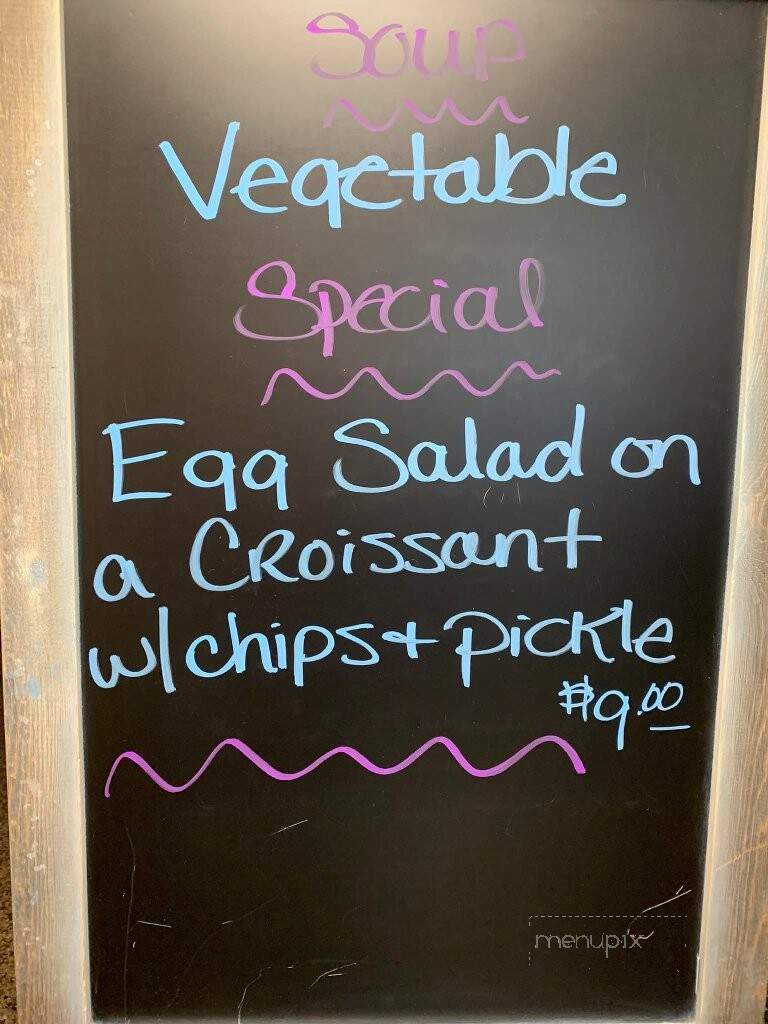 Soup
Vegetable
Special
Egg Salad on
a Croissant
w/chips + pickle
$9.00
menupix